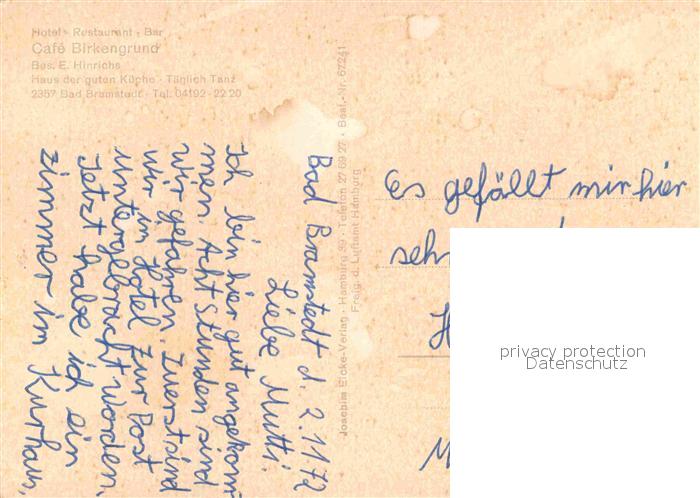 Hotel · Restaurant · Bar
Café Birkengrund
Bes. E. Hinrichs
Haus der guten Küche · Täglich Tanz
2357 Bad Bramstedt · Tel. 04192 - 22 20
Bad Bramstedt d. 2.11.72
Liebe Mutti.
Ich bin hier gut angekom-
men. Acht Stunden sind
wir gefahren. Zuerst sind
wir im Hotel zur Post
untergebracht worden.
Jetzt habe ich ein
Zimmer im Kurhaus,
Joachim Eicke-Verlag · Hamburg 39 · Telefon 27 69 27 · Best.-Nr. 67241
Freig. d. Luftamt Hamburg
Es gefällt mir hier
sehr
H
M
privacy protection
Datenschutz